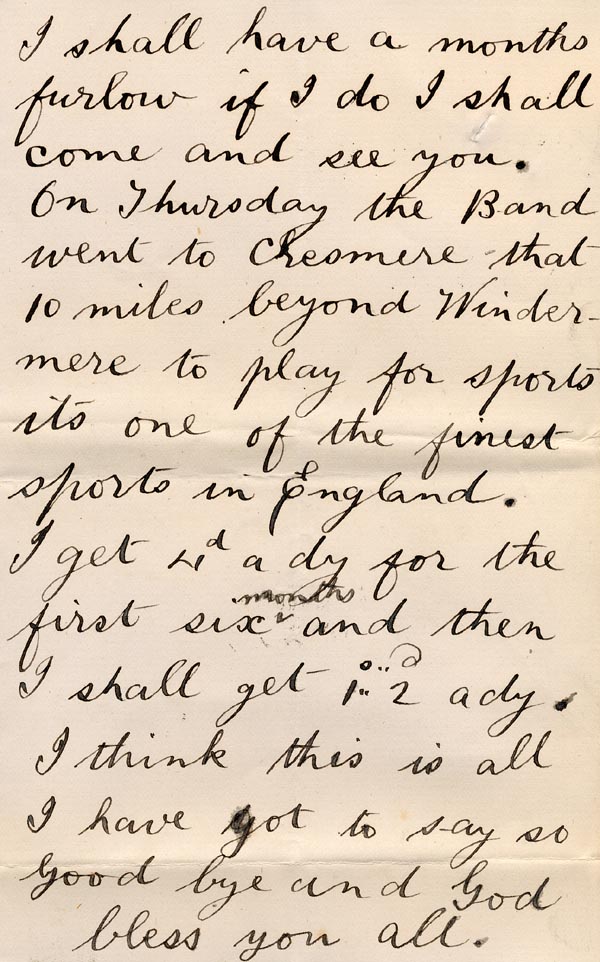 I shall have a months
furlow if I do I shall
come and see you.
On Thursday the Band
went to Cresmere that
10 miles beyond Winder-
mere to play for sports
its one of the finest
sports in England.
I get 4d a dy for the
first six months and then
I shall get 1s..2d a dy.
I think this is all
I have got to say so
Good bye and God
bless you all.